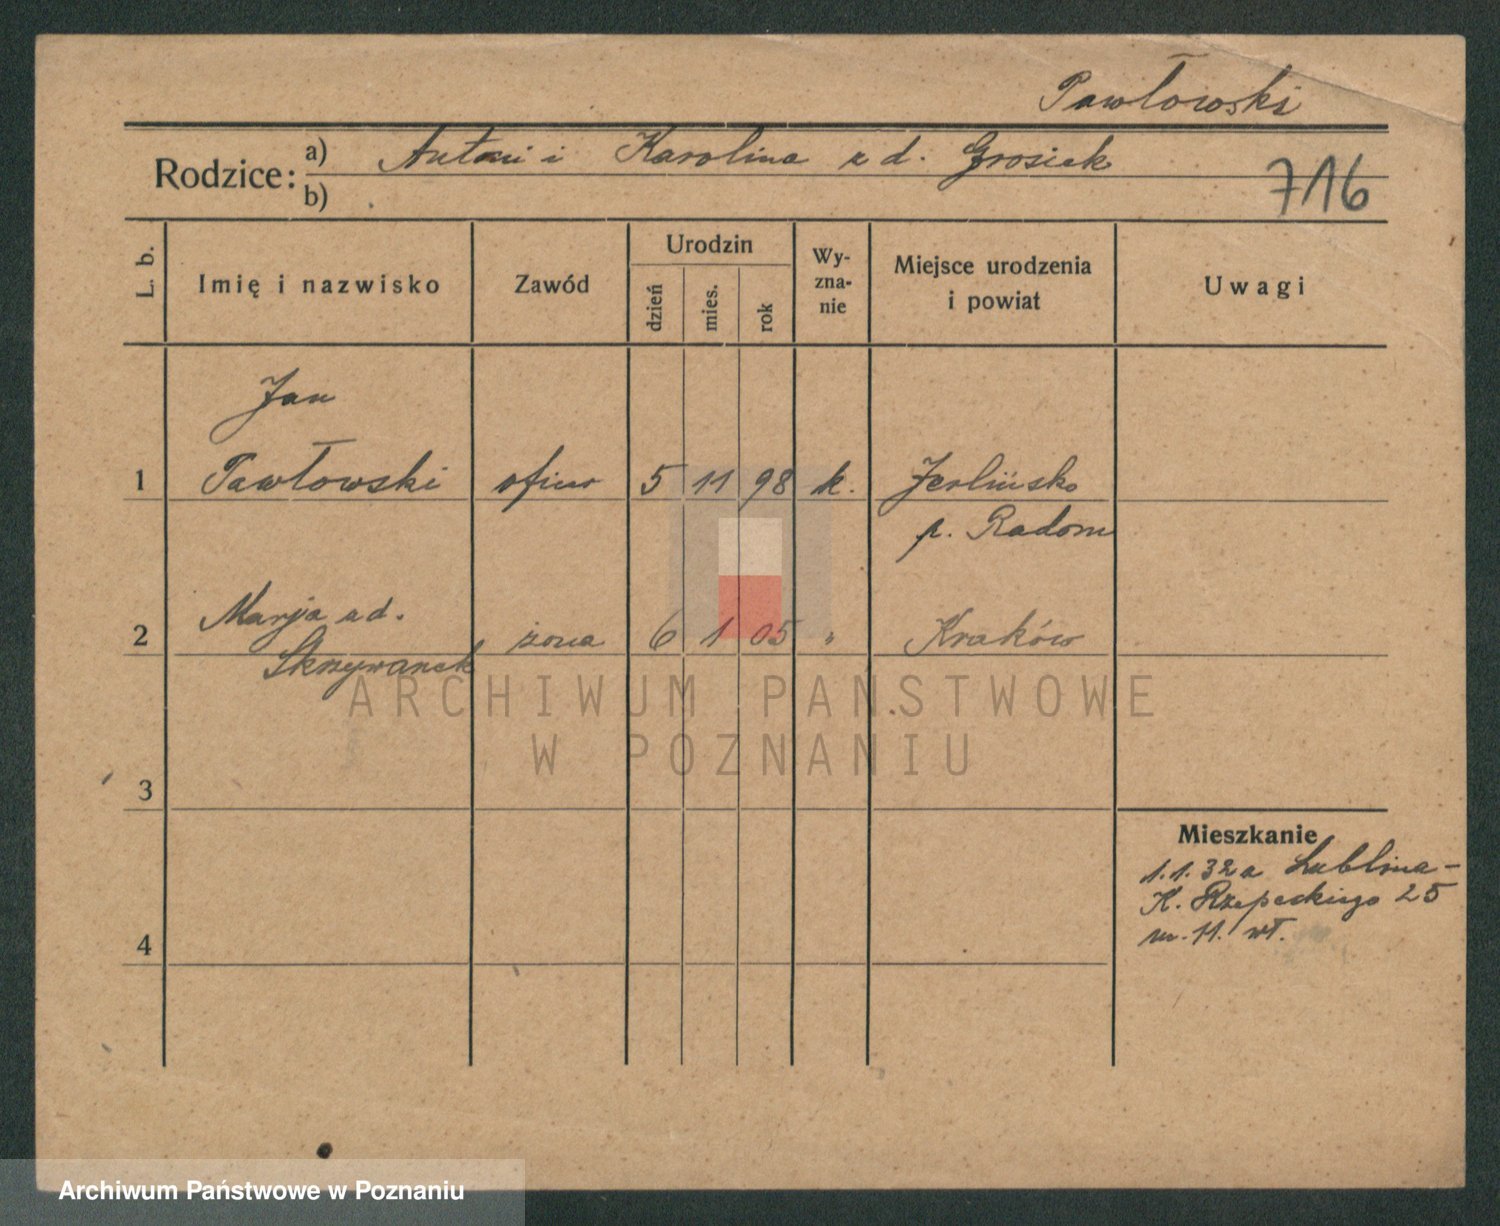 Pawłowski
Rodzice: a) Antoni i Karolina z d. Grosiak
b)
716
L. b.
Imię i nazwisko
Zawód
Urodzin
dzień
mies.
rok
Wy-
zna-
nie
Miejsce urodzenia
i powiat
Uwagi
Jan
1 Pawłowski oficer 5 11 98 k.
p. Radom
Marja z d.
2 żona 6 1 05 " Kraków
Skrzywanek
ARCHIWUM PAŃSTWOWE
W POZNANIU
3
Mieszkanie
1.1.32 z Lublina –
K. Rzepeckiego 25
m. 11. wł.
4
Archiwum Państwowe w Poznaniu